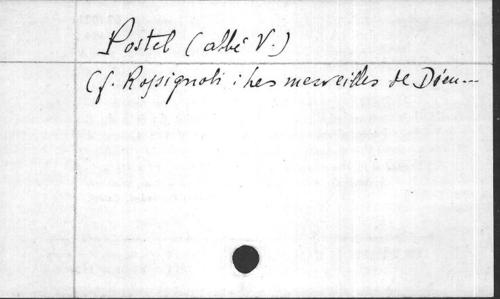 Postel (abbé V.)
Cf. Rossignoli : Les merveilles de Dieu...